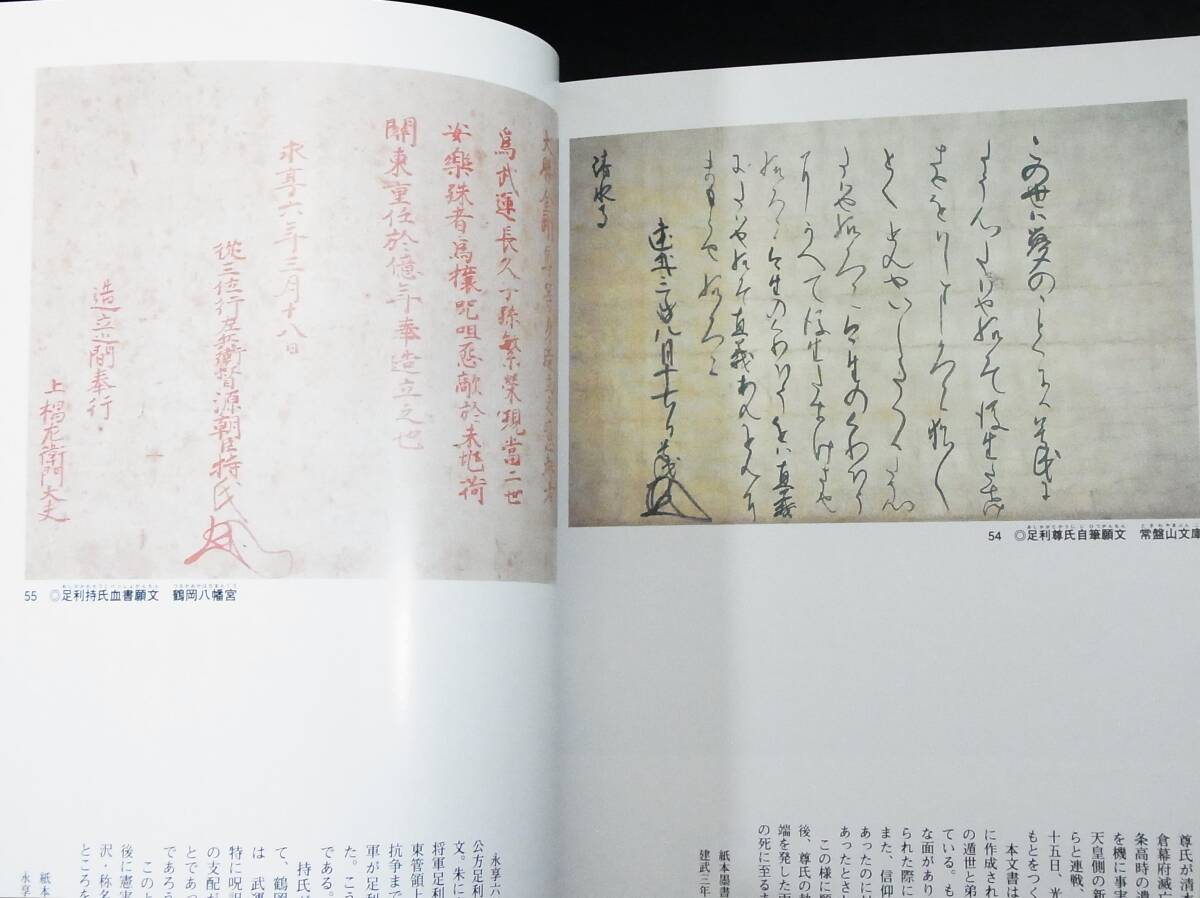 この世ハ夢のことくに候尊氏に
たう心たハせ給候て後生たすけ
させをハしまし候へく候猶々
とくとんせいしたく候たう心
たハせ給候へく候今生のくわほう
にかへて後生たすけさせ
給候へく候今生のくわほうをハ直義
にたハせ給候て直義あんをんに
まもらせ給候へく候
建武三年八月十七日 尊氏
清水寺
54 ◎足利尊氏自筆願文 常盤山文庫
尊氏が清水
倉幕府滅亡
条高時の遺
を機に事実
天皇側の新
らと連戦、
十五日、光
もとをつく
本文書は
に作成され
の遁世と弟
ている。も
な面があり
られた際に
また、信仰
あったのには
あったとさし
この様に願
後、尊氏の執
端を発した両
の死に至るま
紙本墨書
建武三年
為武運長久子孫繁栄現當二世
安樂殊者為攘咒咀怨敵於未兆荷
關東重任於億年奉造立之也
永享六年三月十八日
從三位行左兵衛督源朝臣持氏
造立之間奉行
上椙左衛門大夫
55 ◎足利持氏血書願文 鶴岡八幡宮
永享六
公方足利
文。朱に
将軍足利
東管領上
抗争まで
軍が足利
た。こう
である。
持氏は
て、鶴岡
は 武運
特に呪詛
の支配が
とであっ
であろう
このよ
後に憲実
沢・称名
ところを
紙本
永享